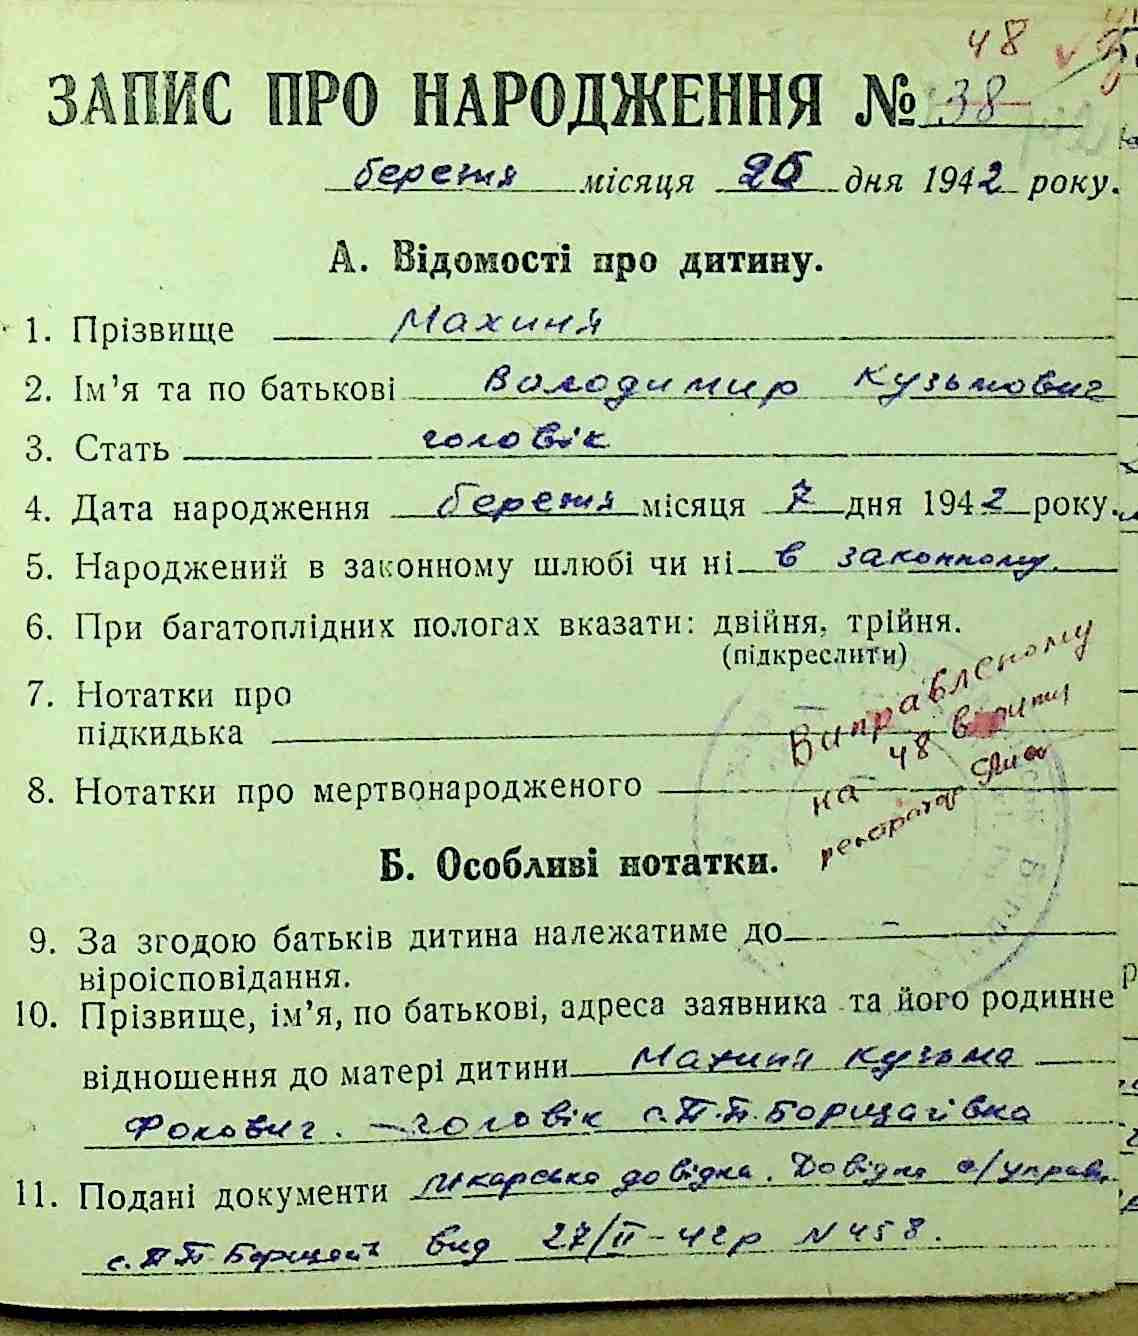 48
ЗАПИС ПРО НАРОДЖЕННЯ № 38
березня місяця 25 дня 1942 року.
А. Відомості про дитину.
1. Прізвище Махиня
2. Ім’я та по батькові Володимир Кузьмович
3. Стать чоловік
4. Дата народження березня місяця 7 дня 1942 року.
5. Народжений в законному шлюбі чи ні в законному.
6. При багатоплідних пологах вказати: двійня, трійня.
(підкреслити)
Виправленому
7. Нотатки про
підкидька
на 48 вірити
8. Нотатки про мертвонародженого
реєстратор
Б. Особливі нотатки.
9. За згодою батьків дитина належатиме до –
віроісповідання.
10. Прізвище, ім’я, по батькові, адреса заявника та його родинне
відношення до матері дитини Махиня Кузьма
Фокович. – чоловік с. П. П. Борщагівка
11. Подані документи Лікарська довідка. Довідка с/управ.
с. П. П. Борщагів вид 27/II – 42 р N 458.